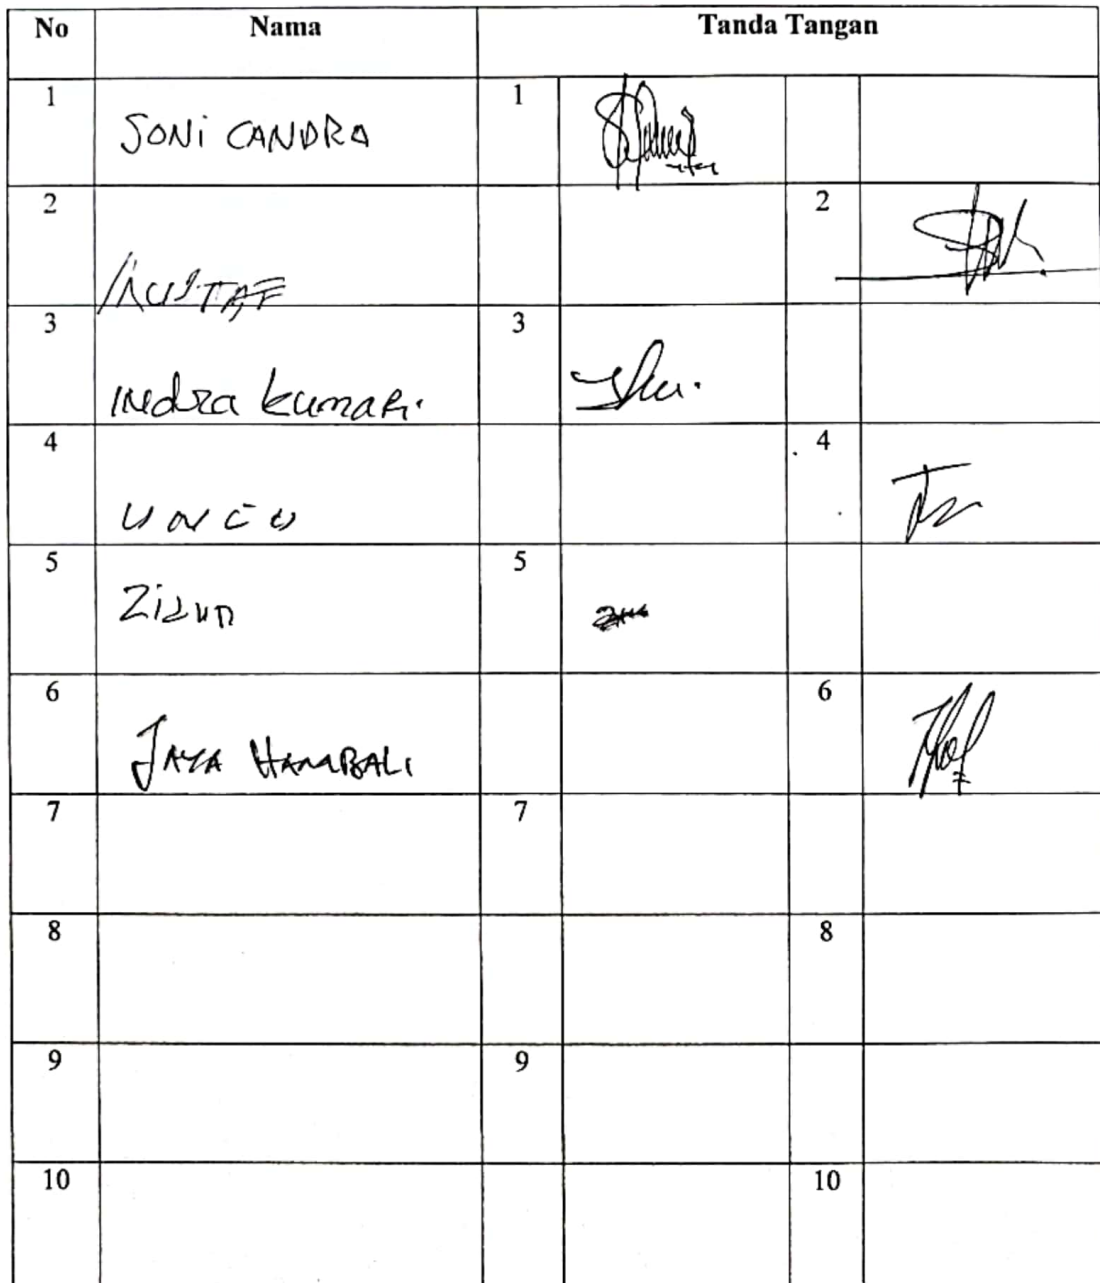 No Nama Tanda Tangan
1 SONi CANDRA 1
2 2
3 Indra kumari. 3
4 4
5 Zidun 5
6 JAYA HAMBALI 6
7 7
8 8
9 9
10 10